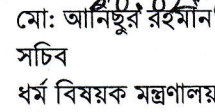 মো: আনিছুর রহমান
সচিব
ধর্ম বিষয়ক মন্ত্রণালয়